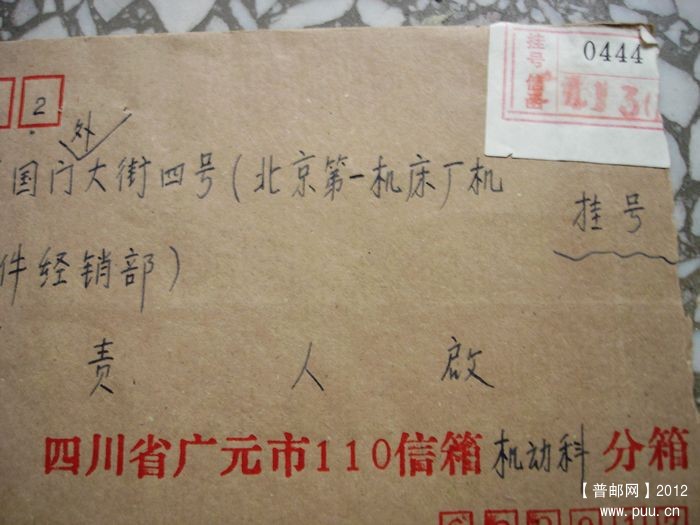 挂号信函
0444
2
外
国门大街四号(北京第一机床厂机
挂号
件经销部)
责人啟
四川省广元市110信箱机动科分箱
【普邮网】2012
www.puu.cn